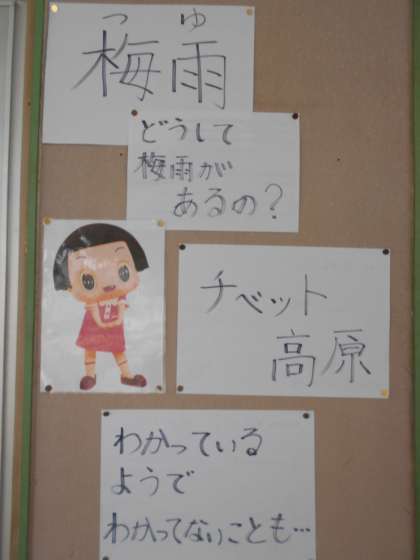 つゆ
梅雨
どうして
梅雨が
あるの?
チベット
高原
わかっている
ようで
わかってないことも…